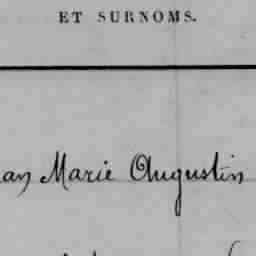 ET SURNOMS.
an Marie Augustin